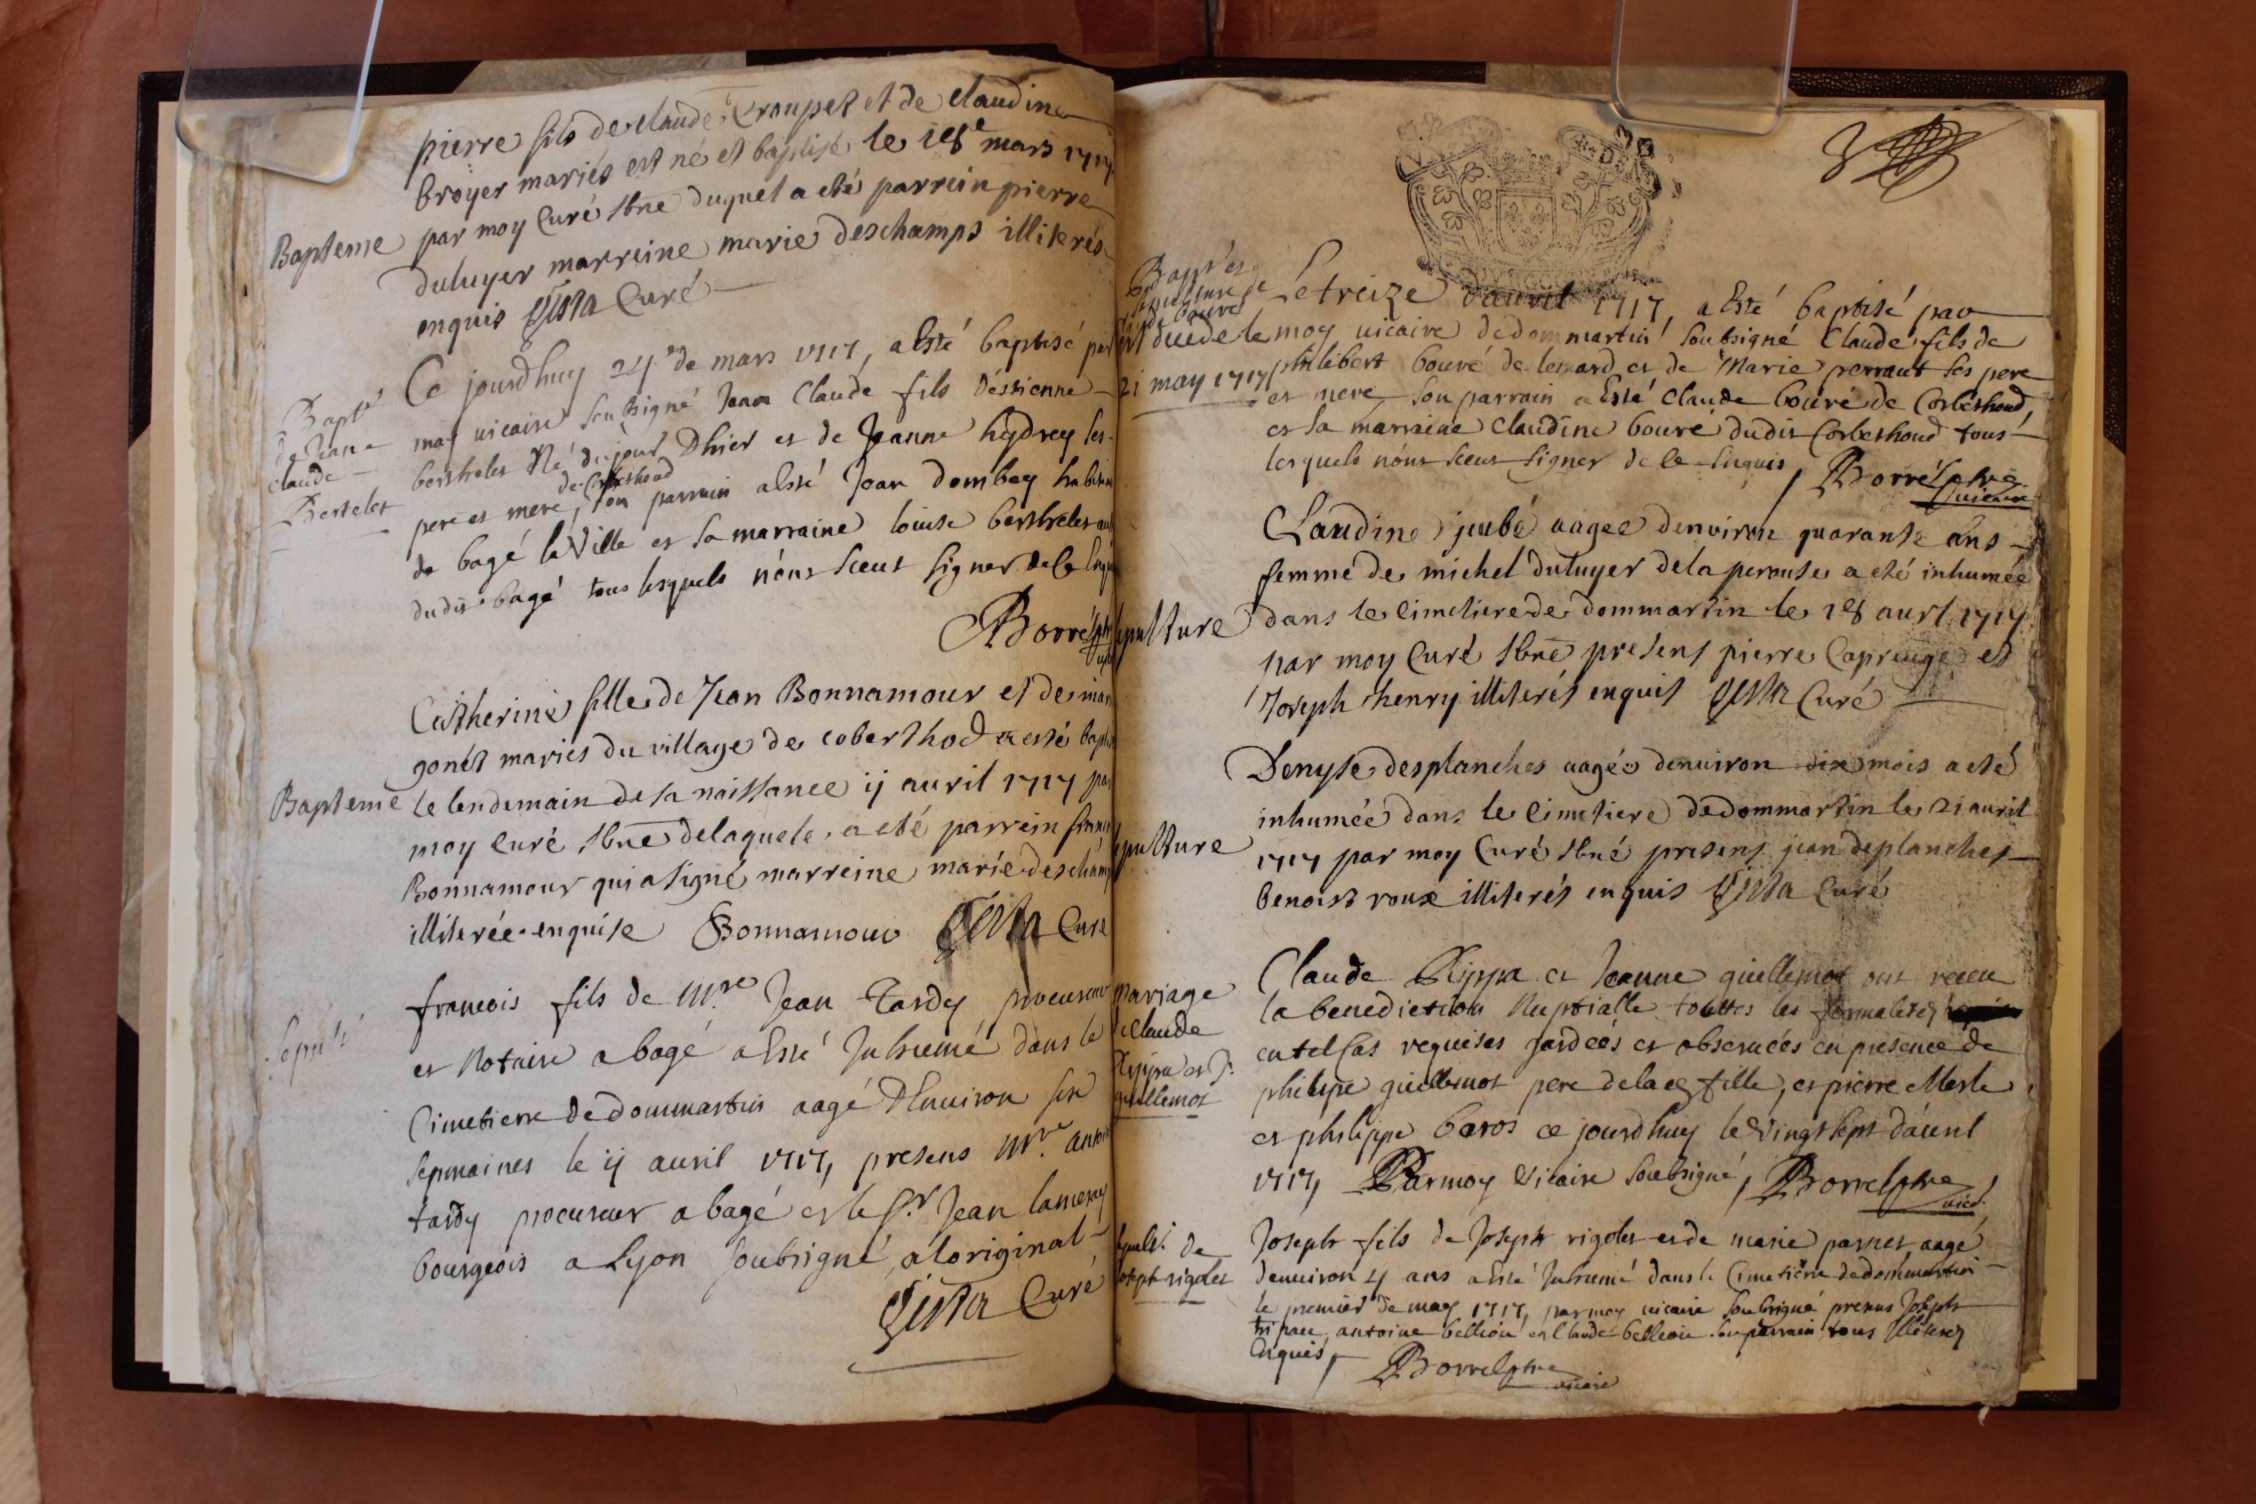 pierre fils de claude Croupet et de claudine
broyer mariés est né et baptisé le 18e mars 1717
Bapteme
par moy Curé sbne duquel a eté parrein pierre
duluyer marreine marie deschamps illiterés
enquis Curé
Bapté
de Jean
claude
Bertelet
Ce jourdhuy 24e de mars 1717, a Esté baptisé par
moy vicaire soubsigné Jean Claude fils d'éstienne
berthelet Né du jour D'hier et de Jeanne hydrey ses
de Corbethoud
pere et mere, son parrain a Esté Jean dombey habitant
de bagé la Ville et sa marraine louise berthelet aussi
dudit bagé tous lesquels n'ont sceut signer de ce Enquis
Borrel ptre
Catherine fille de Jean Bonnamour et de marie
gonet mariés du village de coberthod a esté baptisée
Bapteme
le lendemain de sa naissance ij auvril 1717 par
moy Curé sbne delaquele a eté parrein
Bonnamour qui a signé marreine marie deschamps
illiterée enquise Bonnamour Curé
Sepult
francois fils de Mre Jean Tardy procureur
et Notaire a bagé a Esté Inhumé dans le
Cimetiere de dommartin aagé D'Environ six
sepmaines le ij auvril 1717, presens Mre antoine
tardy procureur a bagé et le Sr Jean lameray
bourgeois a Lyon soubsigné a loriginal
Curé
3
Bapt et
sepulture de
Cl de bouvé
est décédé le
21 may 1717
Le treize d'auvril 1717, a Esté baptisé par
moy vicaire de dommartin soubsigné Claude fils de
philibert bouvé de lemard et de Marie perraut ses pere
et mere son parrain a Esté Claude bouvé de Corbethoud,
et sa marraine Claudine bouvé dudit Corbethoud tous
lesquels n'ont sceut signer de ce Enquis, Borrel ptre
vicaire
Claudine jubé aagée denviron quarante ans
femme de michel duluyer de la perouse a eté inhumée
Sepulture
dans le Cimetiere de dommartin le 18 aurl 1717
par moy Curé sbne presens pierre Caprenge et
Joseph henry illiterés enquis Curé
Denyse desplanches aagée denviron dix mois a eté
inhumée dans le Cimetiere de dommartin le 21 auvril
Sepulture
1717 par moy Curé sbné presens jean deplanches
benoist roux illiterés enquis Curé
Mariage
de Claude
Ryppa et J.
guillemot
Claude Ryppa et Jeanne guillemot ont receu
la benediction Nuptialle touttes les formalitez
en tel Cas requises gardéés et obseruéés en presence de
philippe guillemot pere de la de fille, et pierre Merle
et philippe baros ce jourdhuy le vingt sept d'auvril
1717, Par moy vicaire soubsigné, Borrel ptre
vicr.
Sepult. de
Joseph rigolet
Joseph fils de Joseph rigolet et de marie parnet aagé
denviron 4 ans a Esté Inhumé dans le Cimetiere de dommartin
le premier de may 1717, par moy vicaire soubsigné presens Joseph
tripau antoine bellion et Claude bellion son parrain tous illiterez
Enquis, Borrel ptre
vicaire